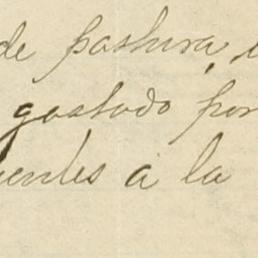 de pastura,
gastado por
uentes a la